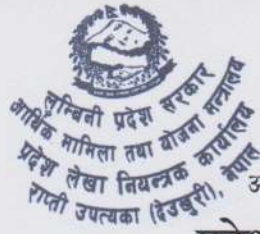 लुम्बिनी प्रदेश सरकार
आर्थिक मामिला तथा योजना मन्त्रालय
प्रदेश लेखा नियन्त्रक कार्यालय
राप्ती उपत्यका (देउखुरी), नेपाल